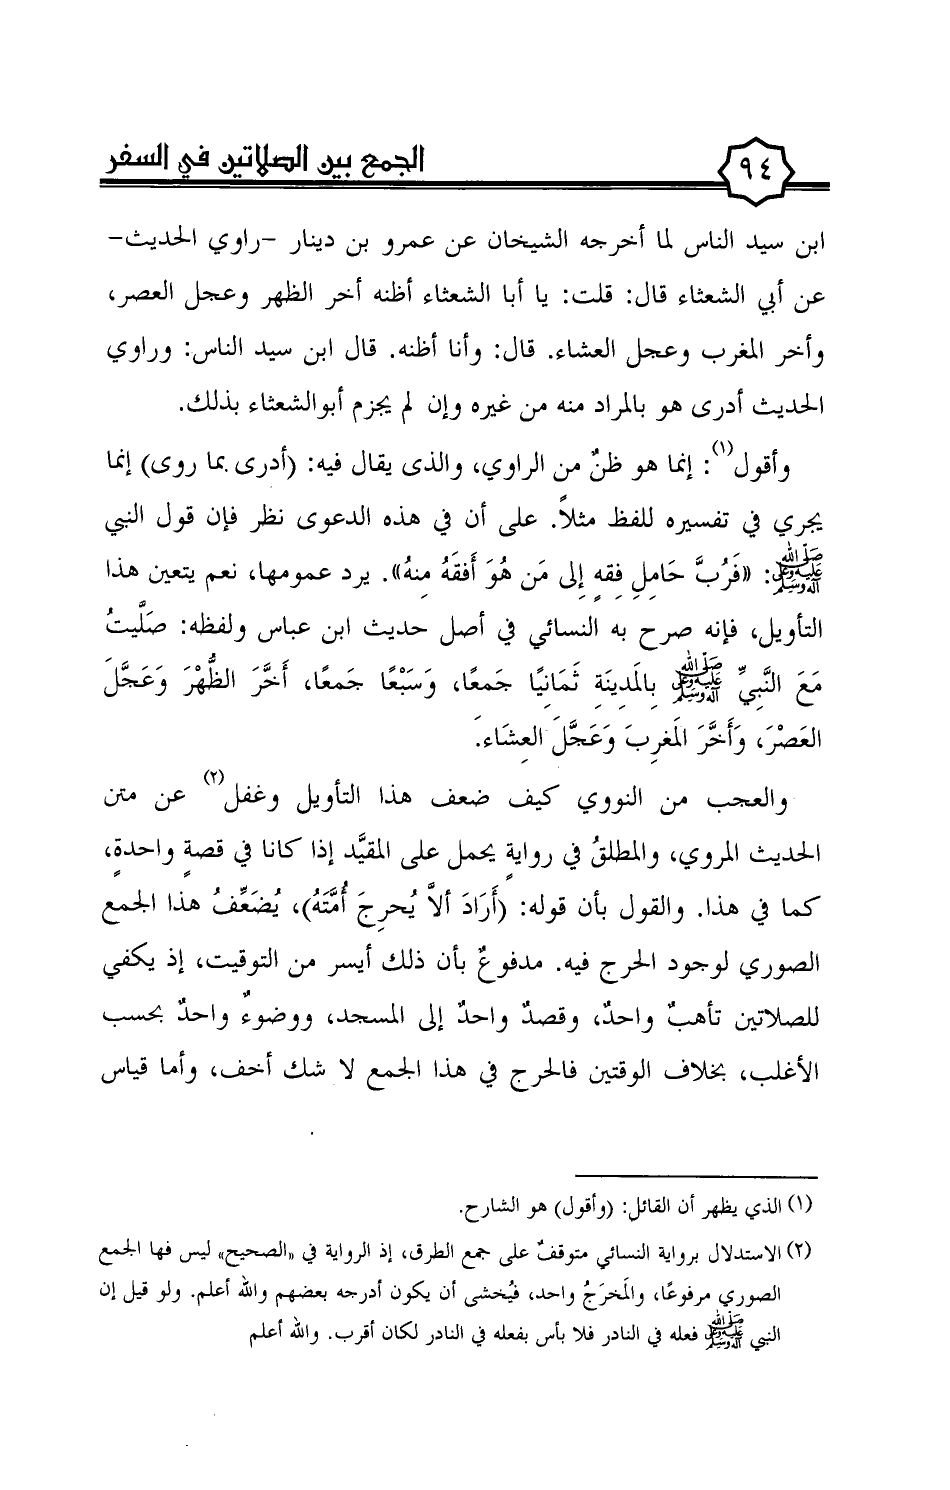 ٩٤
الجمع بين الصلاتين في السفر
ابن سيد الناس لما أخرجه الشيخان عن عمرو بن دينار -راوي الحديث-
عن أبي الشعثاء قال: قلت: يا أبا الشعثاء أظنه أخر الظهر وعجل العصر،
وأخر المغرب وعجل العشاء. قال: وأنا أظنه. قال ابن سيد الناس: وراوي
الحديث أدرى هو بالمراد منه من غيره وإن لم يجزم أبوالشعثاء بذلك.
وأقول(١): إنما هو ظنٌ من الراوي، والذى يقال فيه: (أدرى بما روى) إنما
يجري في تفسيره للفظ مثلاً. على أن في هذه الدعوى نظر فإن قول النبي
ﷺ: «فَرُبَّ حَامِلِ فِقهٍ إِلى مَن هُوَ أَفقَهُ مِنهُ». يرد عمومها، نعم يتعين هذا
التأويل، فإنه صرح به النسائي في أصل حديث ابن عباس ولفظه: صَلَّيتُ
مَعَ النَّبِيِّ ﷺ بِالمَدِينَةِ ثَمَانِيًا جَمعًا، وَسَبْعًا جَمعًا، أَخَّرَ الظُّهْرَ وَعَجَّلَ
العَصْرَ، وَأَخَّرَ المَغرِبَ وَعَجَّلَ العِشَاءَ.
والعجب من النووي كيف ضعف هذا التأويل وغفل(٢) عن متن
الحديث المروي، والمطلقُ في روايةٍ يحمل على المقيَّد إذا كانا في قصةٍ واحدةٍ،
كما في هذا. والقول بأن قوله: (أَرَادَ ألاَّ يُحرِجَ أُمَّتَهُ)، يُضَعِّفُ هذا الجمع
الصوري لوجود الحرج فيه. مدفوعٌ بأن ذلك أيسر من التوقيت، إذ يكفي
للصلاتين تأهبٌ واحدٌ، وقصدٌ واحدٌ إلى المسجد، ووضوءٌ واحدٌ بحسب
الأغلب، بخلاف الوقتين فالحرج في هذا الجمع لا شك أخف، وأما قياس
(١) الذي يظهر أن القائل: (وأقول) هو الشارح.
(٢) الاستدلال برواية النسائي متوقفٌ على جمع الطرق، إذ الرواية في «الصحيح» ليس فها الجمع
الصوري مرفوعًا، والمَخرَجُ واحد، فيُخشى أن يكون أدرجه بعضهم والله أعلم. ولو قيل إن
النبي ﷺ فعله في النادر فلا بأس بفعله في النادر لكان أقرب. والله أعلم